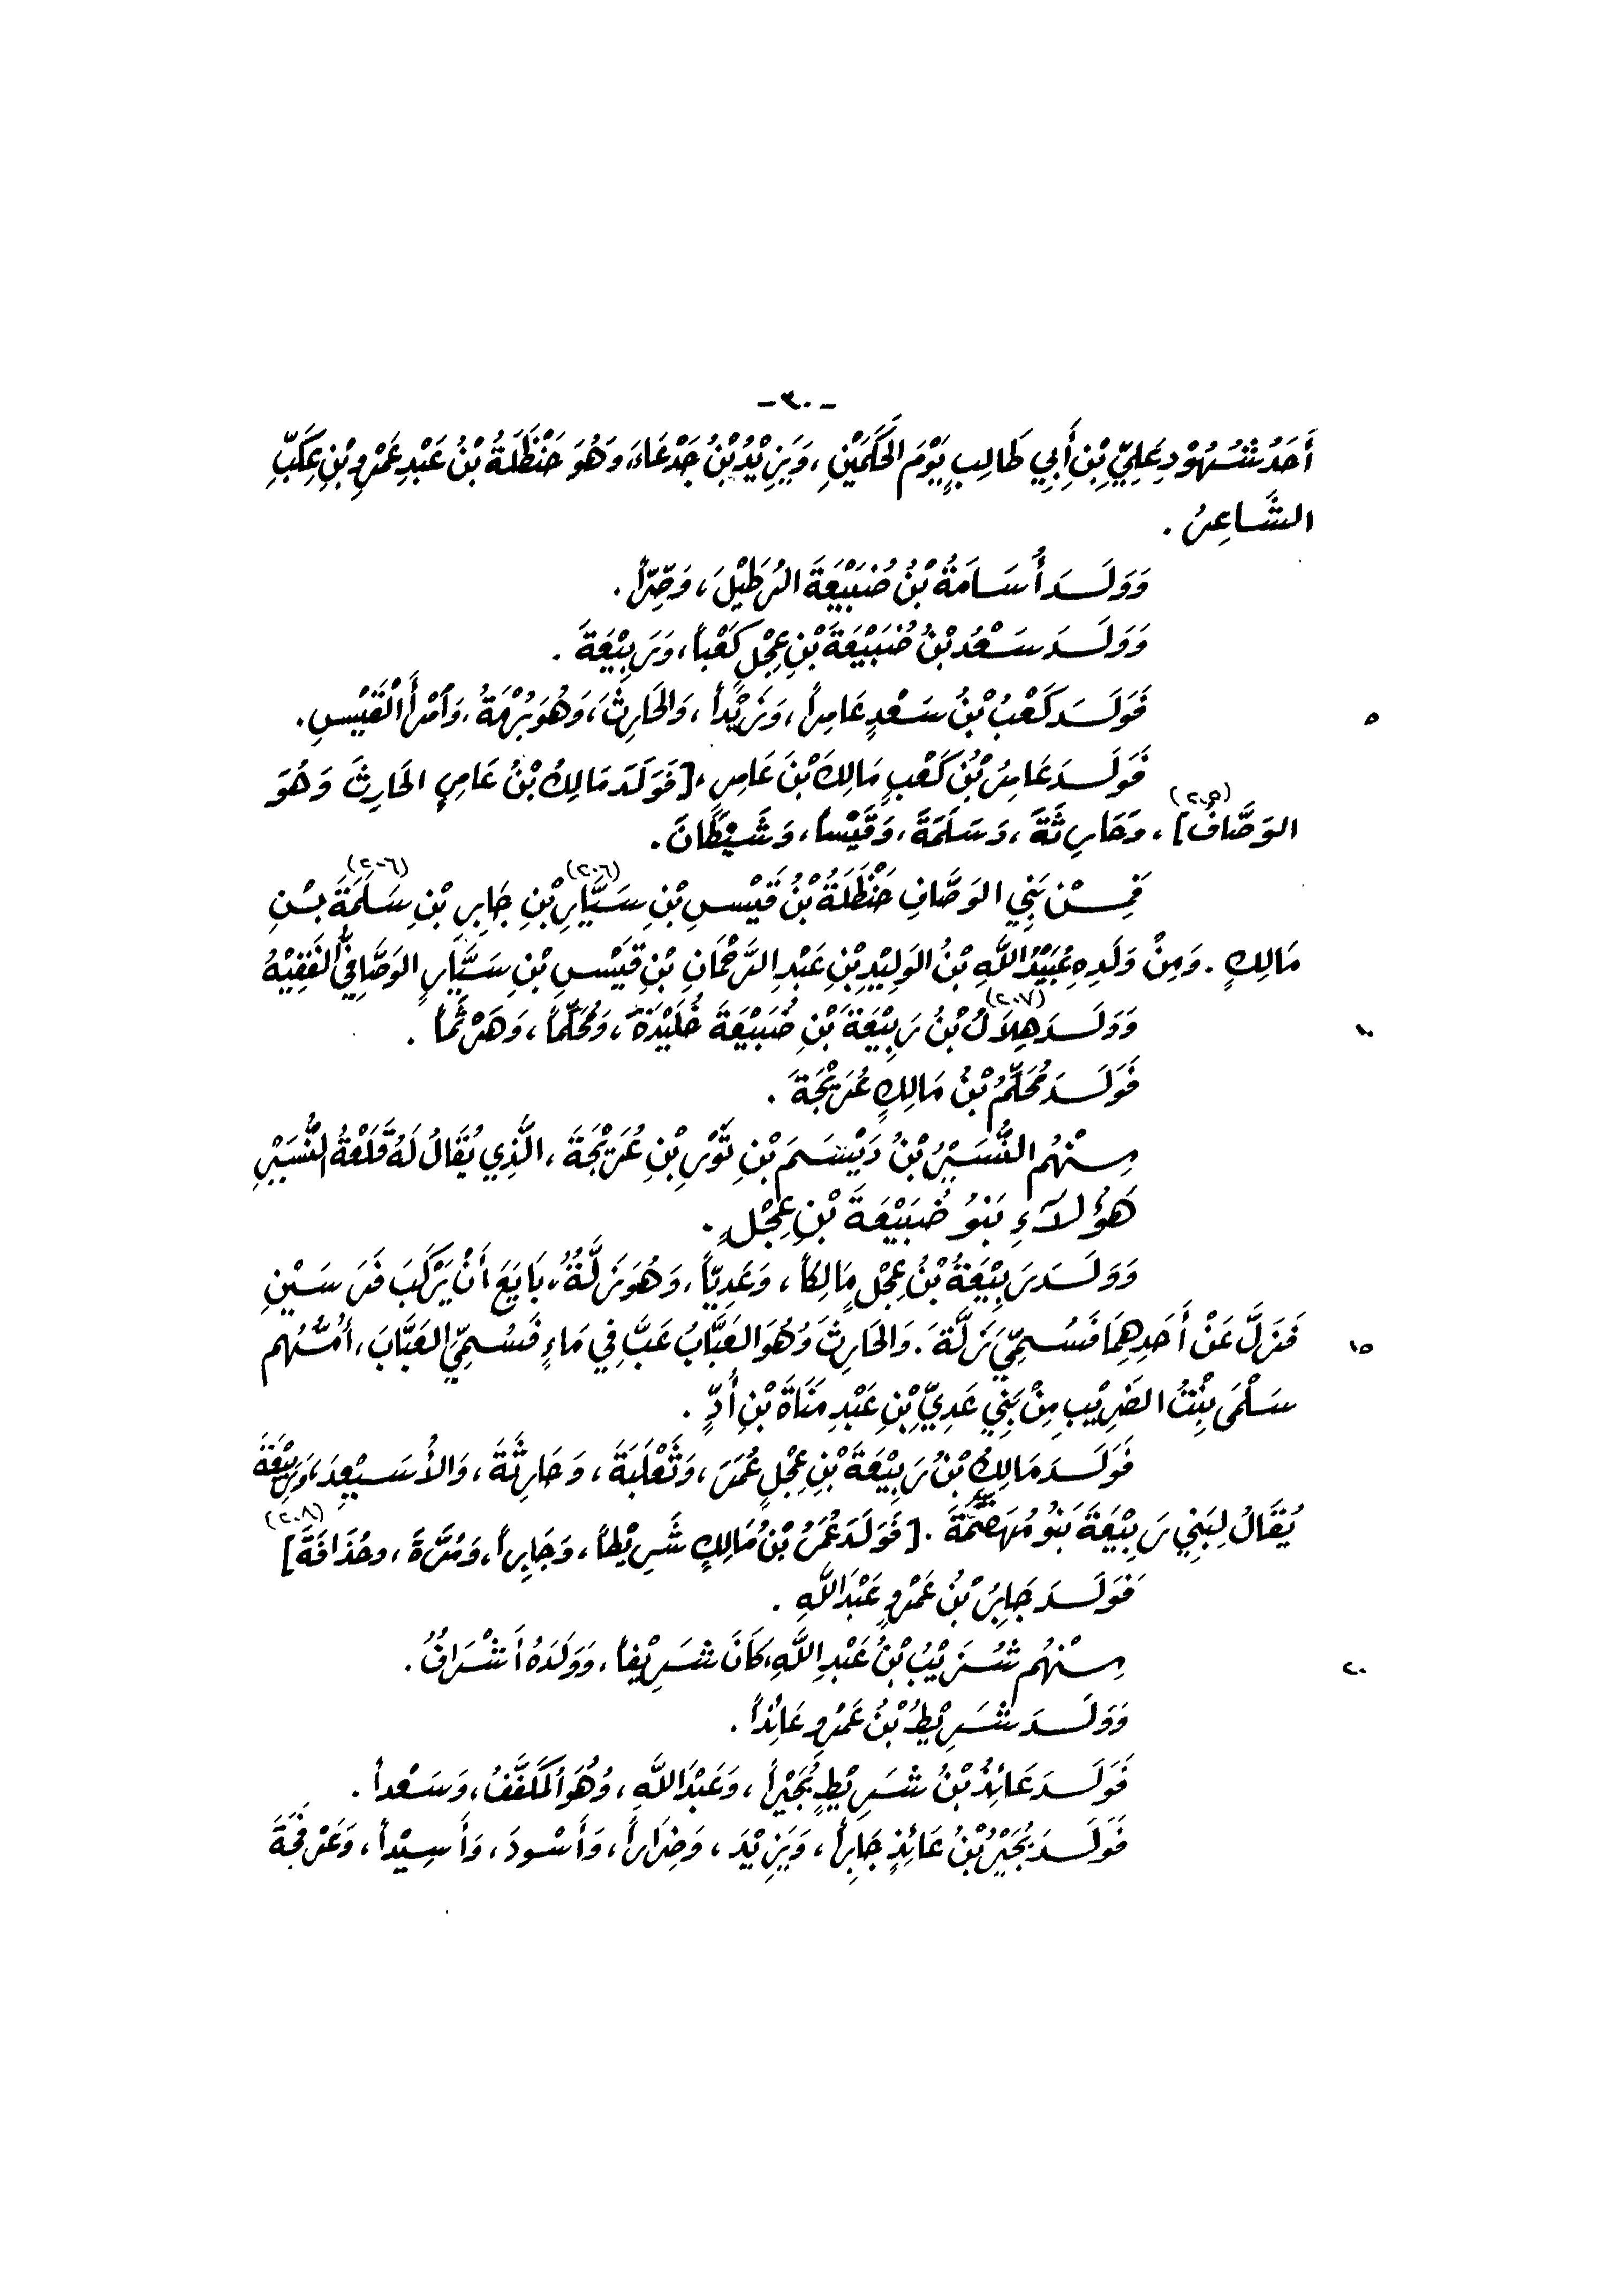 -٣٠-
أَحَدُ شُهُوْدِ عَلِيِّ بْنِ أَبِي طَالِبٍ يَوْمَ الحَكَمَيْنِ، وَيَزِيْدُ بْنُ جَدْعَاءَ، وَهُوَ حَنْظَلَةُ بْنُ عَبْدِ عَمْرِو بْنِ عِكَبِّ
الشَّاعِرُ .
وَوَلَـدَ أُسَامَةُ بْنُ ضُبَيْعَةَ الرُطَيْلَ، وَحِرّاً.
وَوَلَـدَ سَعْدُ بْنُ ضُبَيْعَةَ بْنِ عِجْلٍ كَعْباً، وَرَبِيْعَةَ .
فَوَلَـدَ كَعْبُ بْنُ سَعْدٍ عَامِراً، وَزَيْداً، وَالحَارِثَ، وَهُوَ بُرْمَةُ، وَٱمْرأَ الْقَيْسِ. ٥
فَوَلَـدَ عَامِرُ بْنُ كَعْبٍ مَالِكَ بْنَ عَامِرٍ، [فَوَلَدَ مَالِكُ بْنُ عَامِرٍ الحَارِثَ وَهُوَ
الوَصَّافُ](٢٠٥)، وَحَارِثَةَ، وَسَلَمَةَ، وَقَيْساً، وَشَيْطَانَ.
فَمِـنْ بَنِي الوَصَّافِ حَنْظَلَةُ بْنُ قَيْسِ بْنِ سَيَّارِ(٢٠٦) بْنِ جَابِرِ بْنِ سَلَمَةَ(٢٠٦) بْـنِ
مَالِكٍ . وَمِنْ وَلَدِهِ عُبَيْدُ اللَّهِ بْنُ الوَلِيْدِ بْنِ عَبْدِ الرَّحْمَانِ بْنِ قَيْسِ بْنِ سَيَّارٍ الوَصَّافِيُّ الفَقِيْهُ
وَوَلَـدَ هِلَالُ(٢٠٧) بْنُ رَبِيْعَةَ بْنِ ضُبَيْعَةَ خُلَيْدَةَ، وَمُحَلِّماً، وَهَرْثَماً . ١٠
فَوَلَـدَ مُحَلِّمُ بْنُ مَالِكٍ عُرَيْجَةَ .
مِـنْهُم النُّسَيْرُ بْنُ دَيْسَمَ بْنِ ثَوْرِ بْنِ عُرَيْجَةَ، الَّذِي يُقَالُ لَهُ قَلْعَةُ النُّسَيْرِ
هَؤُلَاءِ بَنُو ضُبَيْعَةَ بْنِ عِجْلٍ.
وَوَلَـدَ رَبِيْعَةُ بْنُ عِجْلٍ مَالِكاً، وَعَدِيّاً، وَهُوَ نَزلَّةُ، بَايَعَ أَنْ يَرْكَبَ فَرَسَيْنِ
فَنَزَلَ عَنْ أَحَدِهِمَا فَسُمِّيَ نَزلَّةَ. وَالحَارِثَ وَهُوَ العَبَّابُ عَبَّ فِي مَاءٍ فَسُمِّيَ العَبَّابَ، أُمُّهُم ١٥
سَلْمَى بِنْتُ الضَرِيْبِ مِنْ بَنِي عَدِيِّ بْنِ عَبْدِ مَنَاةَ بْنِ أُدٍّ .
فَوَلَـدَ مَالِكُ بْنُ رَبِيْعَةَ بْنِ عِجْلٍ عُمَرَ، وَثَعْلَبَةَ، وَحَارِثَةَ، وَالأُسَيْعِدَ، وَرَبِيْعَةَ
يُقَالُ لِبَنِي رَبِيْعَةَ بَنُو . [فَوَلَدَ عُمَرُ بْنُ مَالِكٍ شَرِيْطاً، وَجَابِراً، وَمُرَّةَ، وحُذَافَةَ](٢٠٨)
فَوَلَـدَ جَابِرُ بْنُ عَمْرٍو عَبْدَ اللَّهِ .
مِـنْهُم شُرَيْبُ بْنُ عَبْدِ اللَّهِ، كَانَ شَرِيْفاً، وَوَلَدُهُ أَشْرَافٌ. ٢٠
وَوَلَـدَ شَرِيْطُ بْنُ عَمْرٍو عَائِذاً .
فَوَلَـدَ عَائِذُ بْنُ شَرِيْطٍ بُجَيْراً، وَعَبْدَ اللَّهِ، وَهُوَ المُكَفَّفُ، وَسَعْداً .
فَوَلَـدَ بُجَيْرُ بْنُ عَائِذٍ جَابِراً، وَيَزِيْدَ، وَضِرَاراً، وَأَسْودَ، وَأَسِيْداً، وَعَرْفَجَةَ